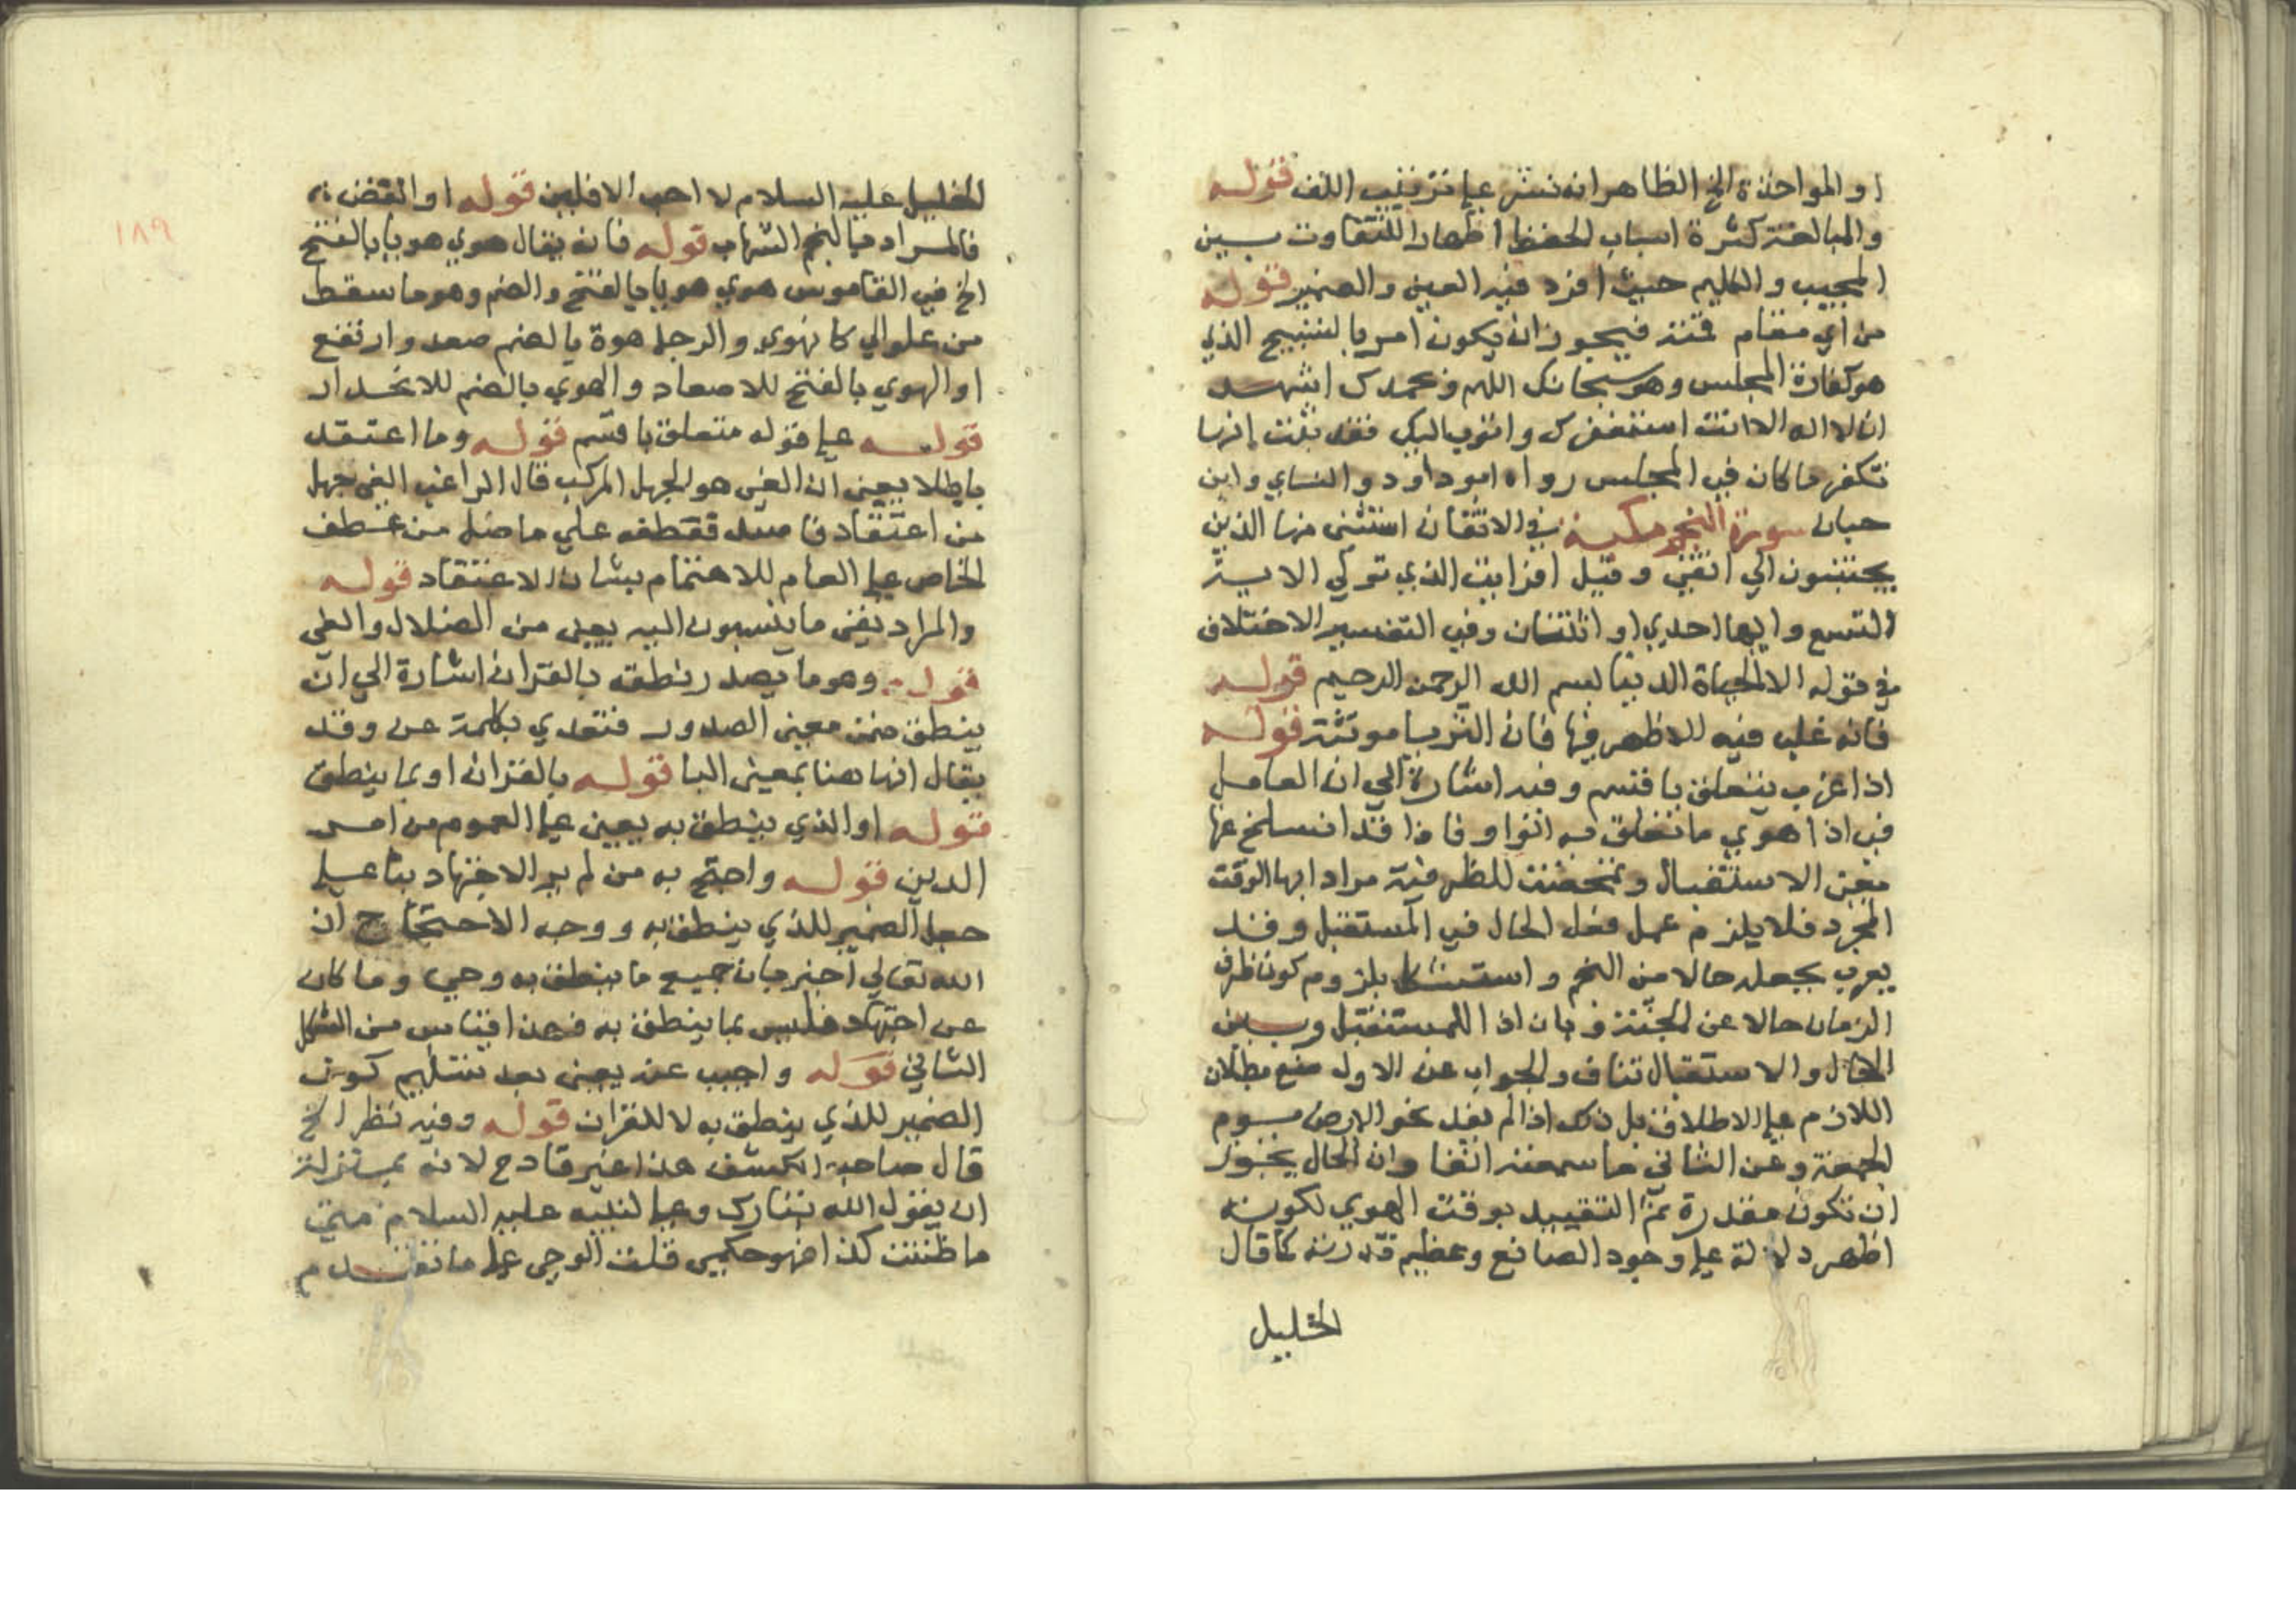 او المواخذة الخ الظاهر انه نشر علي ترتيب اللف قوله
والمبالغة كثرة اسباب الحفظ اظهارا للتفاوت بين
الحبيب والكليم حيث افرد فيه العين والضمير قوله
من اي مقام قمت فيجوز ان يكون امر بالتسبيح الذي
هو كفارة المجلس وهو سبحانك اللهم وبحمدك اشهد
ان لا اله الا انت استغفرك واتوب اليك فقد ثبت انها
تكفر ما كان في المجلس رواه ابو داود والنساي وابن
حبان سورة النجم مكية في الاتقان استثني منها الذين
يجتنبون الي اتقي وقيل افرايت الذي تولي الايت
التسع وايها احدي او اثنتان وفي التفسير الاختلاف
في قوله الا الحياة الدنيا بسم الله الرحمن الرحيم قوله
فانه غلب فيه للاظهر فيها فان الثريا مونثة قوله
اذا غرب يتعلق باقسم وفيه اشارة الي ان العامل
في اذا هوي ما تعلق به الواو فاذا قد انسلخ عنها
معني الاستقبال وتمحضت للظرفية مرادا بها الوقت
المجرد فلا يلزم عمل فعل الحال في المستقبل وقد
يعرب بجعله حالا من النجم واستشكل بلزوم كون ظرف
الزمان حالا عن الجثة وبان اذا للمستقبل وبين
الحال والاستقبال تناف والجواب عن الاول منع بطلان
اللازم علي الاطلاق بل ذلك اذا لم يفد نحو الارض يوم
الجمعة وعن الثاني ما سمعته انفا وان الحال يجوز
ان تكون مقدرة ثم التقييد بوقت الهوي لكونه
اظهر دلالة علي وجود الصانع وعظيم قدرته كما قال
الخليل
١٨٩
الخليل عليه السلام لا احب الافلين قوله او انقض
فالمراد بالنجم الشهاب قوله فانه يقال هوي هويا بالفتح
الخ في القاموس هوي هويا بالفتح والضم وهو ما سقط
من علو الي كانهوي والرجل هوة بالضم صعد وارتفع
او الهوي بالفتح للاصعاد والهوي بالضم للانحدار
قوله علي قوله متعلق باقسم قوله وما اعتقد
باطلا يعني ان الغي هو الجهل المركب قال الراغب الغي جهل
من اعتقاد فاسد فعطفه علي ما ضل من عطف
الخاص علي العام للاهتمام بشان الاعتقاد قوله
والمراد نفي ما ينسبون اليه يعني من الضلال والغي
قوله وهو ما يصدر نطقه بالقران اشارة الي ان
ينطق ضمن معني الصدور فتعدي بكلمة عن وقد
يقال انها هنا بمعني البا قوله بالقران او بما ينطق
قوله او الذي ينطق به يعني علي العموم من امر
الدين قوله واحتج به من لم ير الاجتهاد بنا علي
جعل الضمير للذي ينطق به ووجه الاحتجاج ان
الله تعالي اخبر بان جميع ما ينطق به وحي وما كان
عن اجتهاد فليس بما ينطق به فهذا قياس من الشكل
الثاني قوله واجيب عنه يعني بعد تسليم كون
الضمير للذي ينطق به لا للقران قوله وفيه نظر الخ
قال صاحب الكشف هذا غير قادح لانه بمنزلة
ان يقول الله تبارك وتعالي لنبيه عليه السلام متي
ما ظننت كذا فهو حكمي قلت الوحي علي ما تقدم